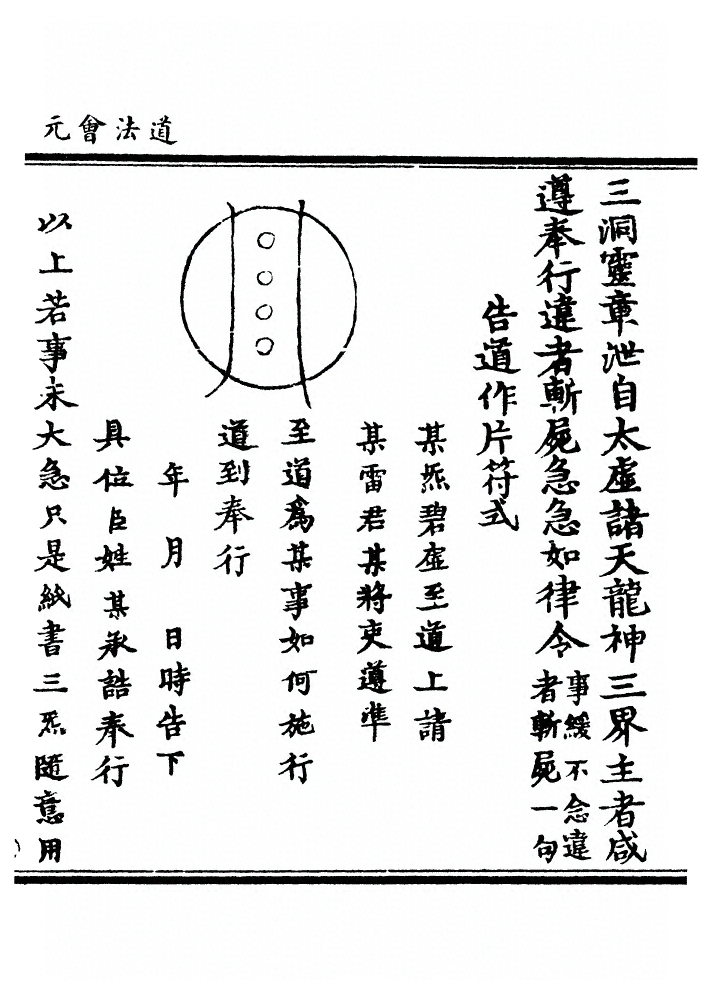 道法會元
三洞靈章泄自太虛諸天龍神三界主者咸
遵奉行違者斬屍急急如律令事緩不念違者斬屍一句
告道作片符式
某炁碧虛至道上請
某雷君某將吏遵準
至道爲某事如何施行
道到奉行
年月日時告下
具位臣姓某承誥奉行
以上若事未大急只是紙書三炁隨意用